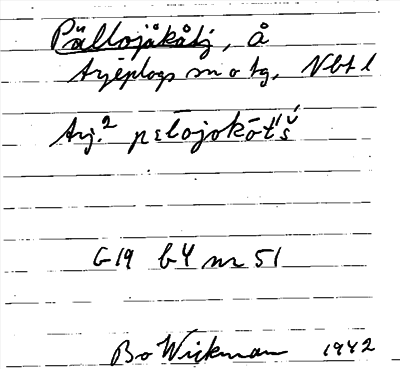 Pällojåkåtj, å
Arjeplogs sn o tg, Nbt l
Arj.² pɛ̄lojokōt́š́
G19 b4 nr 51
Bo Wickman 1942